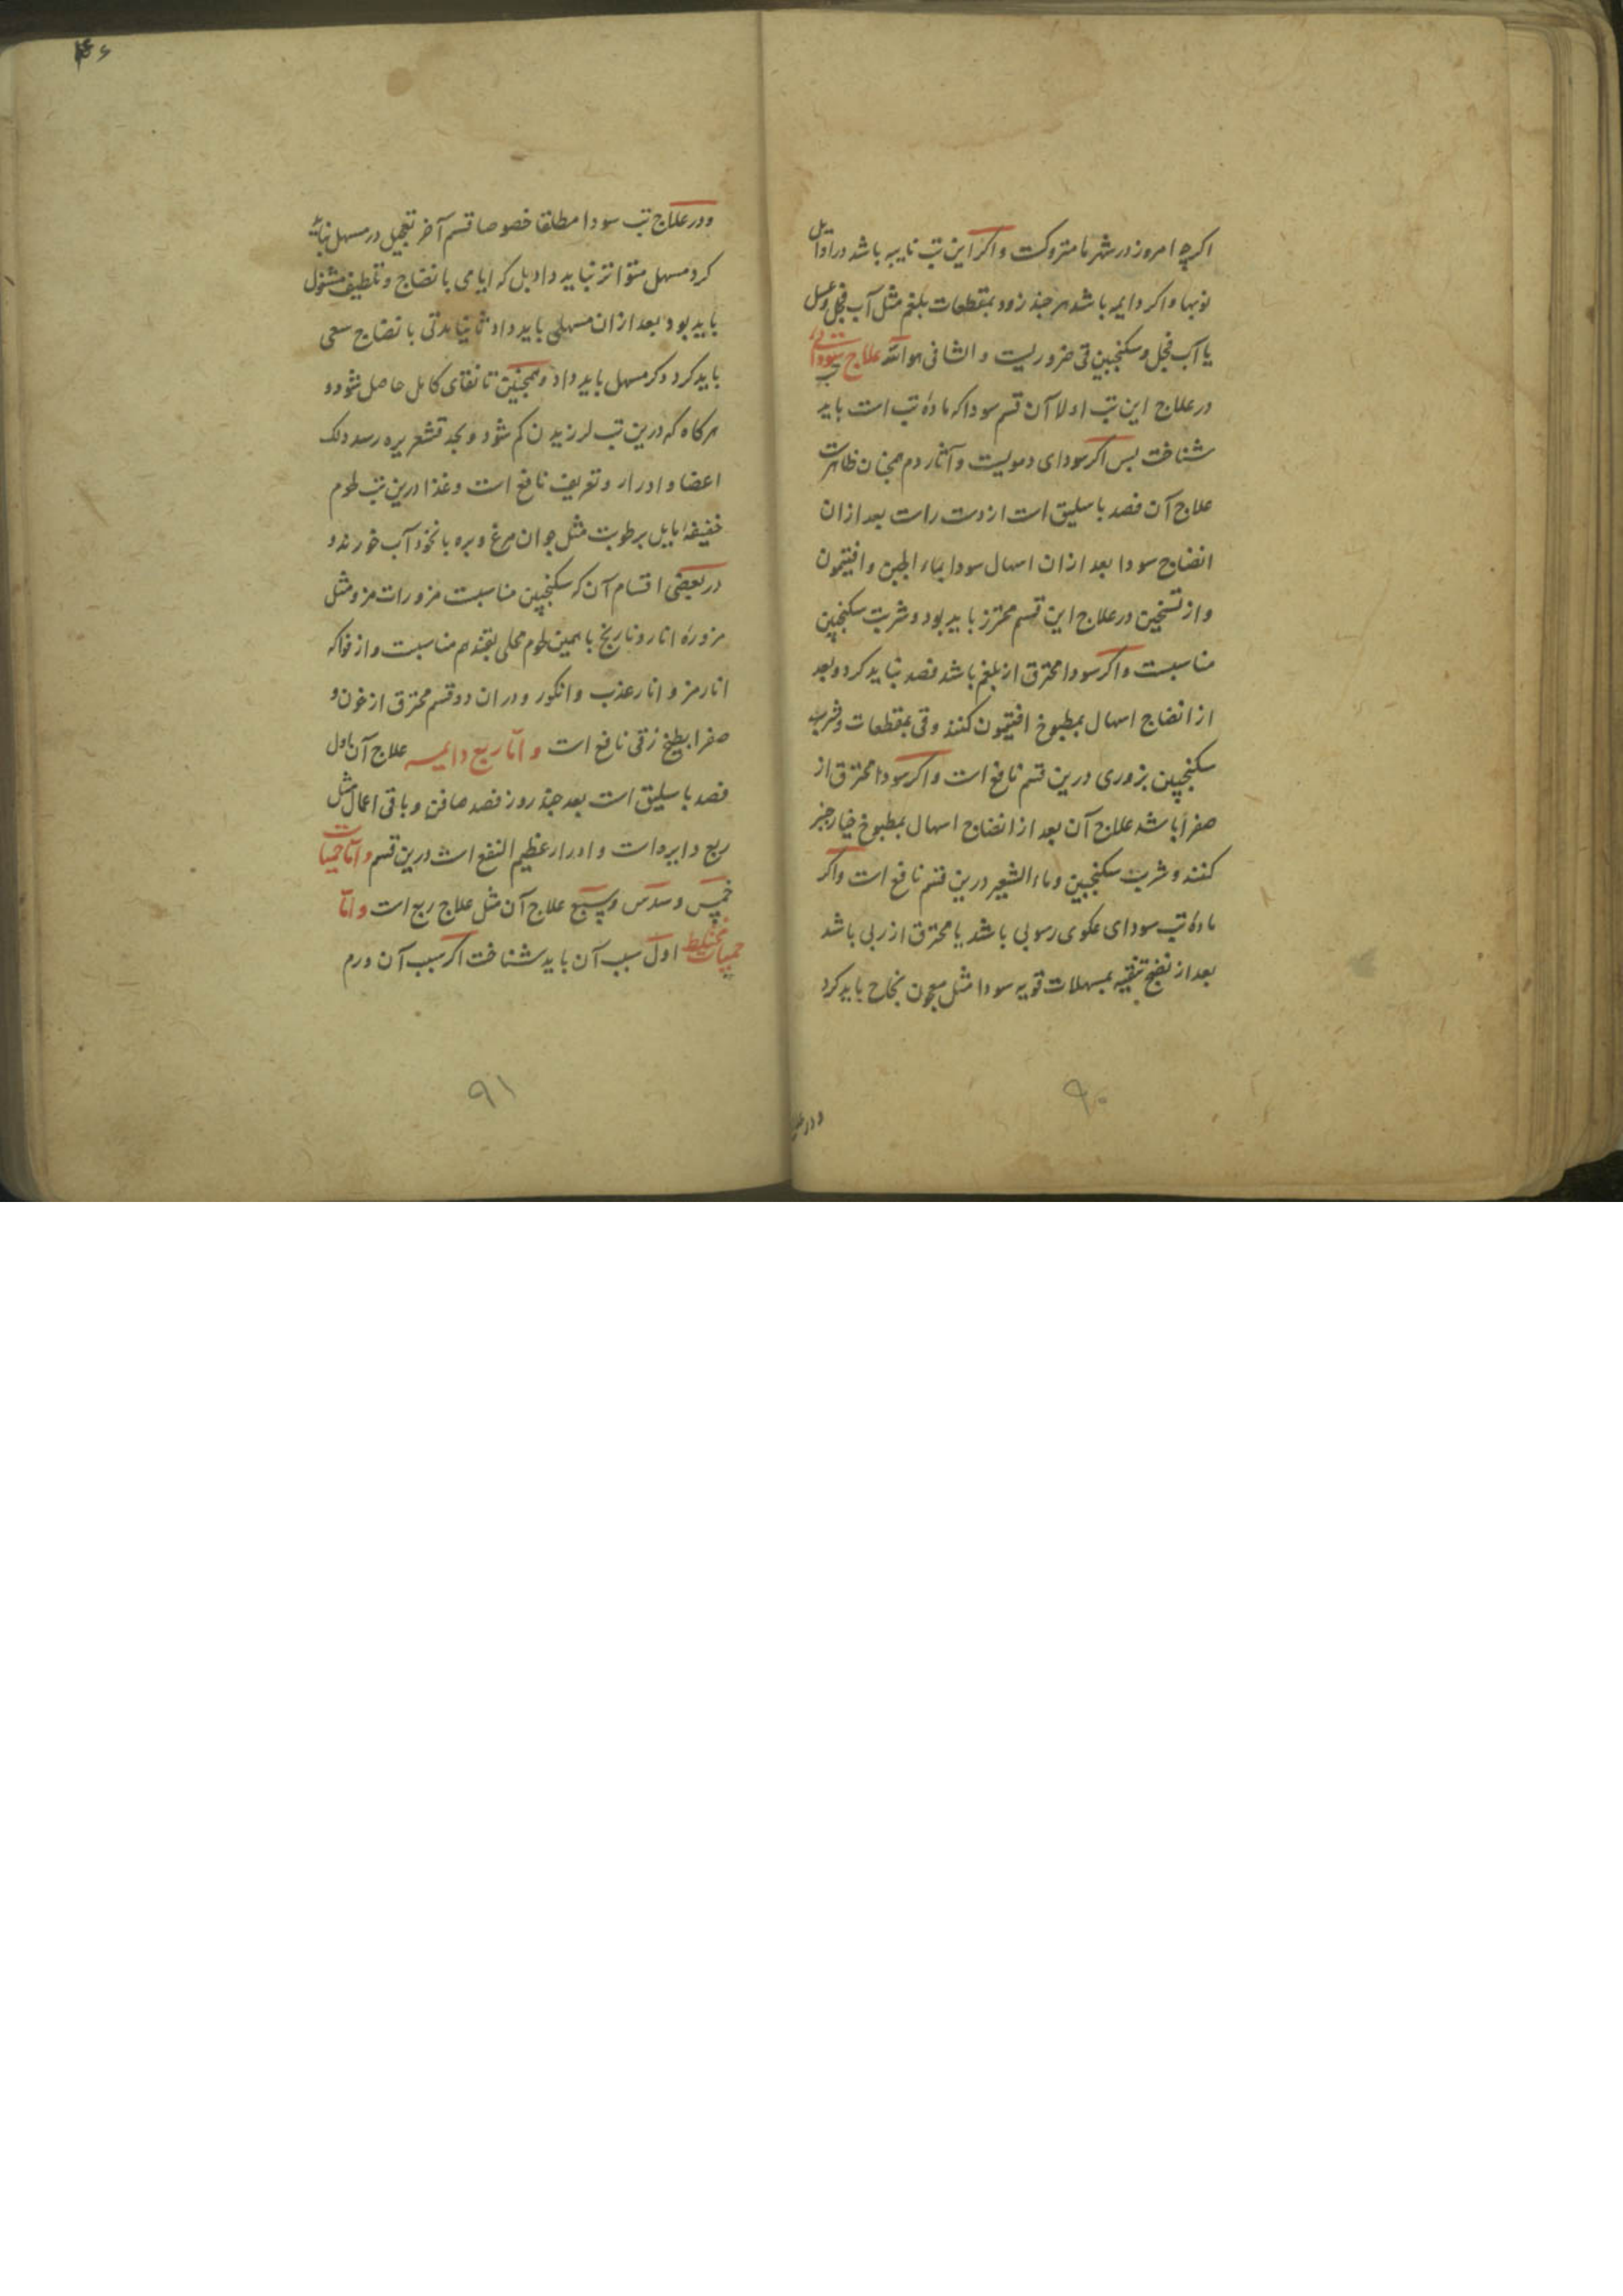 اکرچه امروز در شهر ما متروکست و اکر این تب نایبه باشد در اوایل
نوبها و اکر دایمه باشد هر چند زود بمقطعات بلغم مثل آب فجل و عسل
یا آب فجل و سکنجبین قی ضروریست و الشافی هو الله علاج تب سودائی
در علاج این تب اولا آن قسم سودا که ماده تب است باید
شناخت بس اکر سودای دمویست و آثار دم همچنان ظاهرست
علاج آن فصد باسلیق است از دست راست بعد از ان
انضاج سودا بعد از ان اسهال سودا بماء الجبن و افتیمون
و از تسخین در علاج این قسم محترز باید بود و شربت سکنجبین
مناسبست و اکر سودا محترق از بلغم باشد فصد نباید کرد و بعد
از انضاج اسهال بمطبوخ افتیمون کنند و قی بمقطعات و شرب
سکنجبین بزوری درین قسم نافع است و اکر سودا محترق از
صفرا باشد علاج آن بعد از انضاج اسهال بمطبوخ خیارچنبر
کنند و شربت سکنجبین و ماء الشعیر درین قسم نافع است و اکر
ماده تب سودای عکری رسوبی باشد یا محترق از ربی باشد
بعد از نضج تنقیه بمسهلات قویه سودا مثل معجون نجاح باید کرد
۹۰
و در علاج
۴۶
و در علاج تب سودا مطلقا خصوصا قسم آخر تعجیل در مسهل نباید
کرد مسهل متواتر نباید داد بل که ایامی بانضاج و تلطیف مشغول
باید بود بعد از ان مسهلی باید داد ثانیا مدتی بانضاج سعی
باید کرد و کر مسهل باید داد و همچنین تا نقای کامل حاصل شود و
هرکاه که درین تب لرزیدن کم شود و بحد قشعریره رسد دلک
اعضا و ادرار و تعریق نافع است و غذا درین تب لحوم
خفیفه مایل برطوبت مثل جوان مرغ و بره بانخود آب خورند و
در بعضی اقسام آن که سکنجبین مناسبت مزورات مز و مثل
مزوره انار و نارنج با همین لحوم محلی بقند هم مناسبست و از فواکه
انار مز و انار عذب و انکور و در ان دو قسم محترق از خون و
صفرا بطیخ زقی نافع است و اما ربع دایمه علاج آن باول
فصد باسلیق است بعد چند روز فصد صافن و باقی اعمال مثل
ربع دایره است و ادرار عظیم النفع است درین قسم و اما حمیات
خمس و سدس و سبع علاج آن مثل علاج ربع است و اما
حمیات مختلط اول سبب آن باید شناخت اکر سبب آن ورم
۹۱